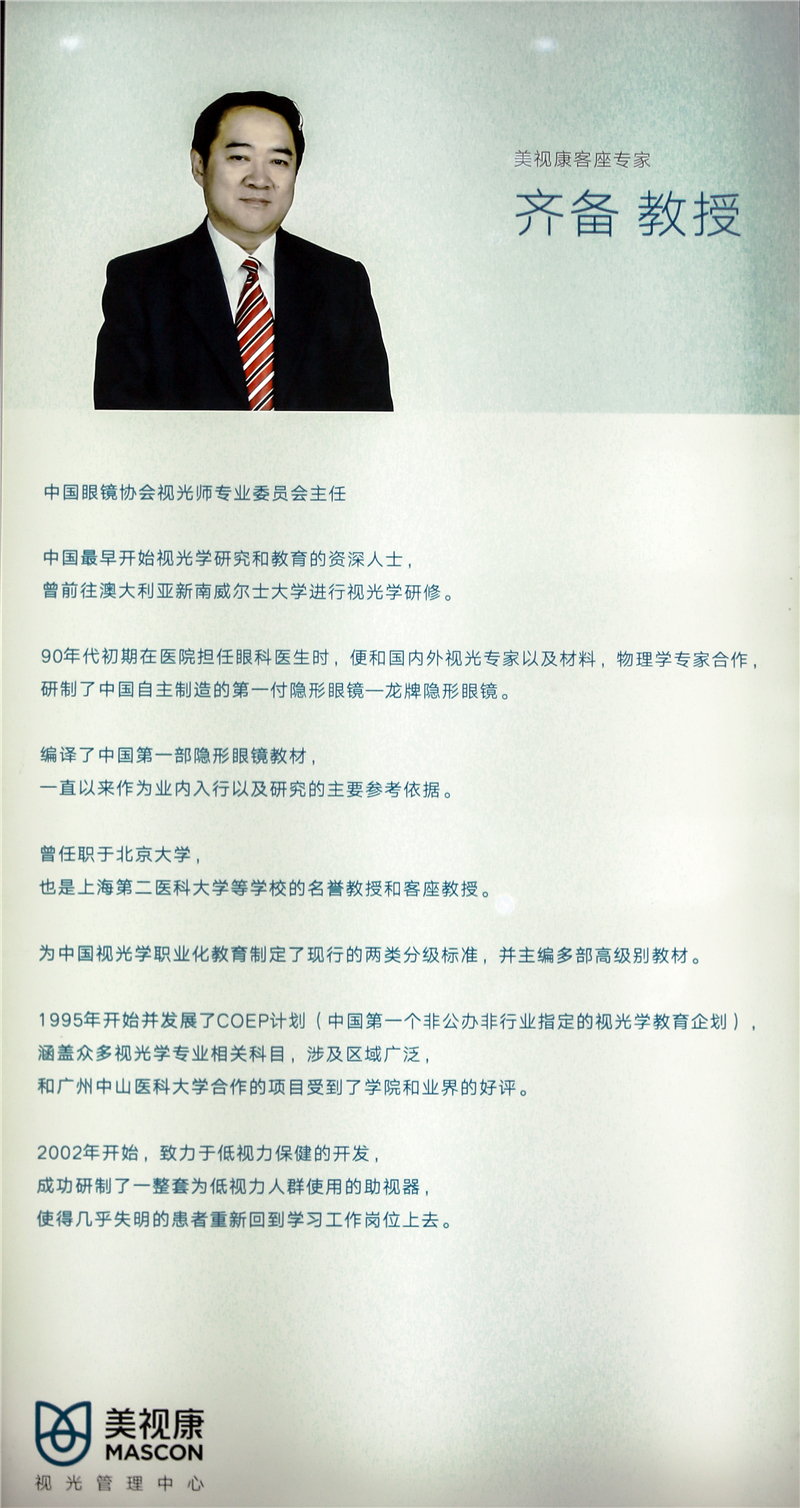 美视康客座专家
齐备 教授
中国眼镜协会视光师专业委员会主任
中国最早开始视光学研究和教育的资深人士，
曾前往澳大利亚新南威尔士大学进行视光学研修。
90年代初期在医院担任眼科医生时，便和国内外视光专家以及材料，物理学专家合作，
研制了中国自主制造的第一付隐形眼镜—龙牌隐形眼镜。
编译了中国第一部隐形眼镜教材，
一直以来作为业内入行以及研究的主要参考依据。
曾任职于北京大学，
也是上海第二医科大学等学校的名誉教授和客座教授。
为中国视光学职业化教育制定了现行的两类分级标准，并主编多部高级别教材。
1995年开始并发展了COEP计划（中国第一个非公办非行业指定的视光学教育企划），
涵盖众多视光学专业相关科目，涉及区域广泛，
和广州中山医科大学合作的项目受到了学院和业界的好评。
2002年开始，致力于低视力保健的开发，
成功研制了一整套为低视力人群使用的助视器，
使得几乎失明的患者重新回到学习工作岗位上去。
美视康
MASCON
视光管理中心